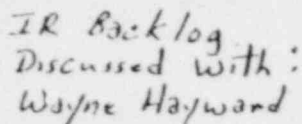 IR Backlog
Discussed with:
Wayne Hayward